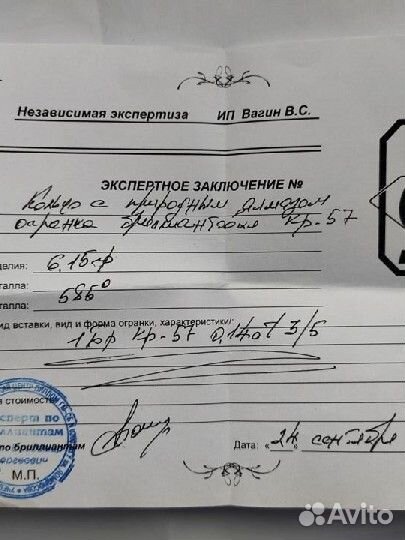 Независимая экспертиза ИП Вагин В.С.
ЭКСПЕРТНОЕ ЗАКЛЮЧЕНИЕ №
Кольцо с природным алмазом
огранка бриллиантовая Кр-57
делия: 6,15 гр
талла:
талла: 585°
ид вставки, вид и форма огранки, характеристики:
1 бр Кр-57 0,14ct 3/5
я стоимость
сперта по
ллиантам
по бриллиантам
М.П.
Дата: «24» сентября
Avito